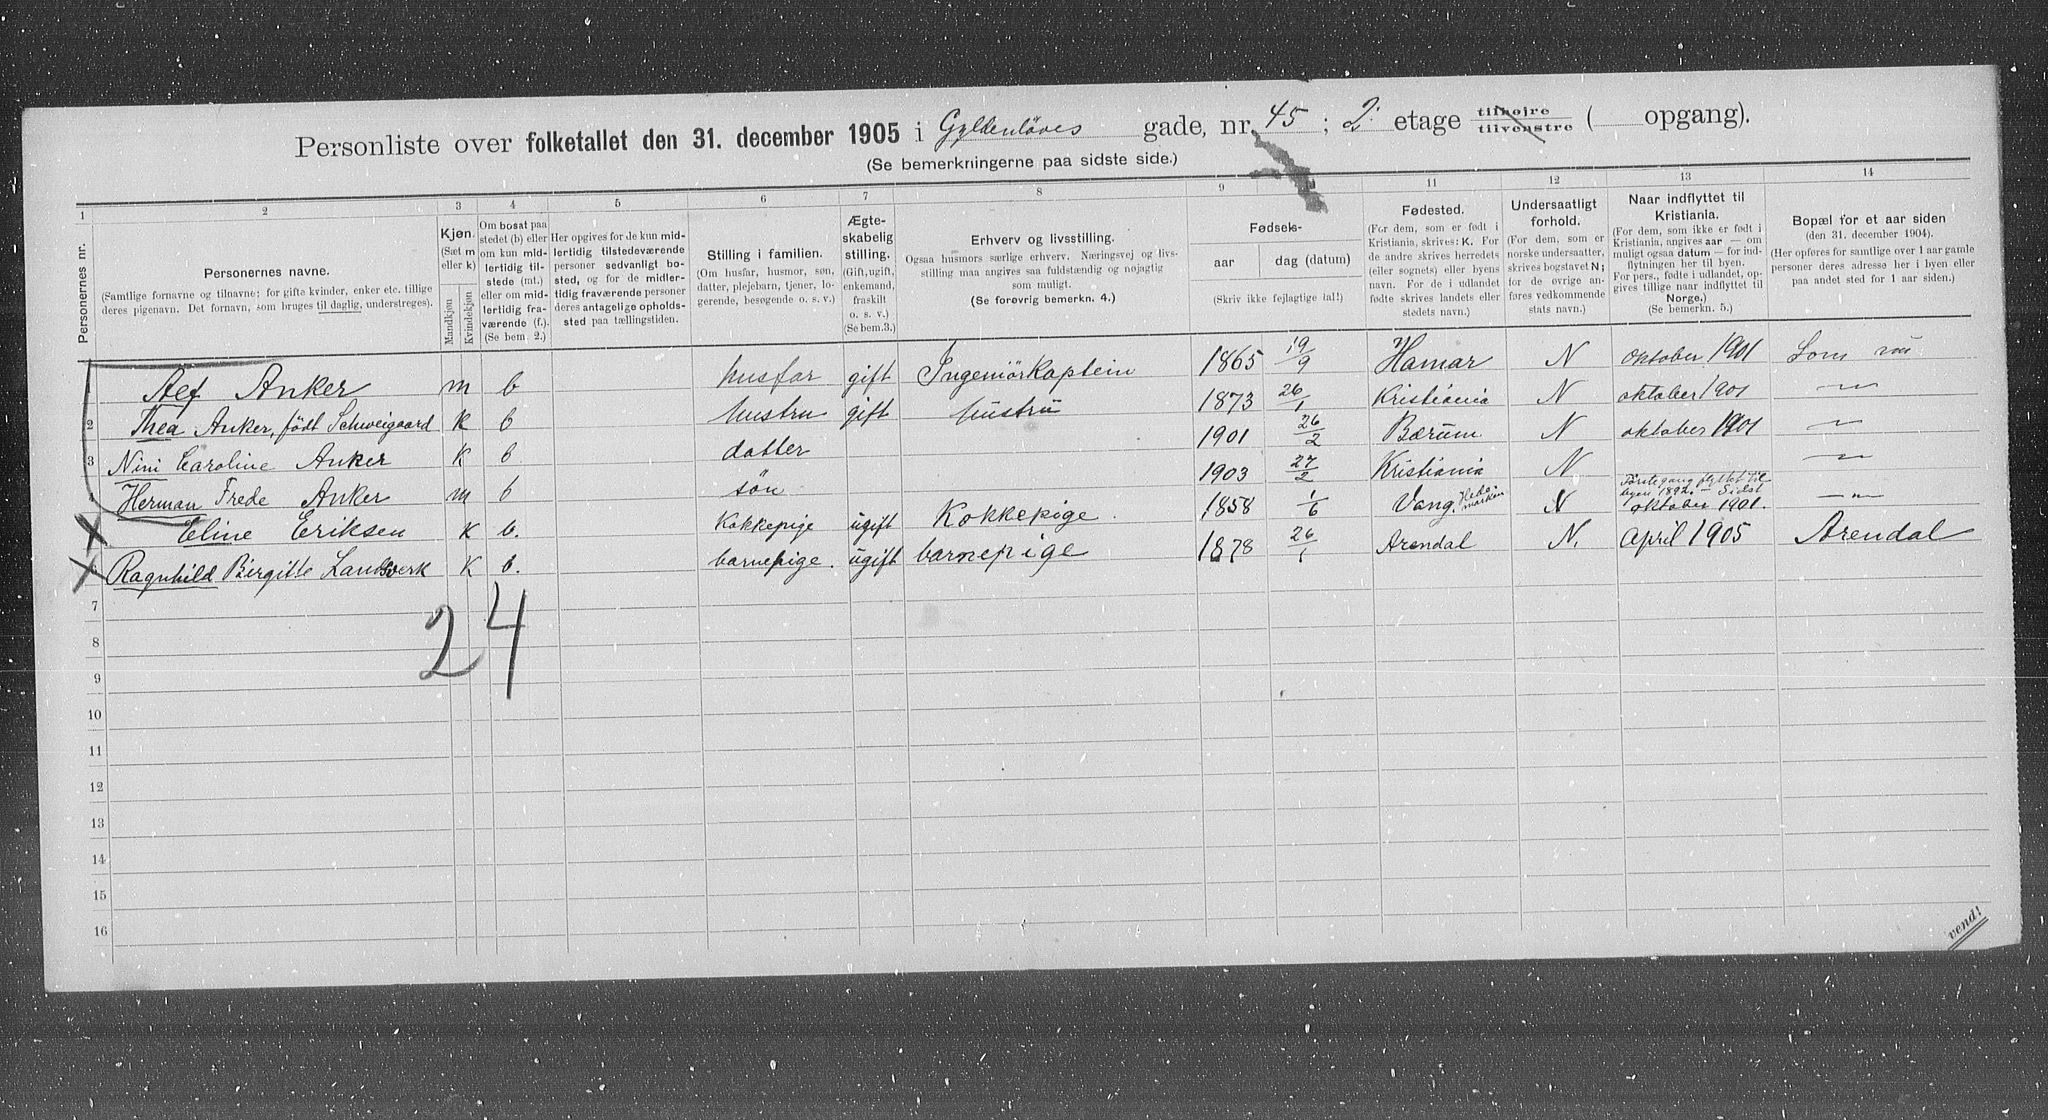 Personliste over folketallet den 31. december 1905 i Gyldenløves gade, nr. 45 ; 2. etage tilhøjre tilvenstre ( opgang).
(Se bemerkningerne paa sidste side.)
1 2 3 4 5 6 7 8 9 11 12 13 14
Personernes nr.
Personernes navne.
(Samtlige fornavne og tilnavne; for gifte kvinder, enker etc. tillige
deres pigenavn. Det fornavn, som bruges til daglig, understreges).
Kjøn.
(Sæt m
eller k)
Mandkjøn
Kvindekjøn
Om bosat paa
stedet (b) eller
om kun mid-
lertidig til-
stede (mt.)
eller om mid-
lertidig fra-
værende (f.)
(Se bem. 2.)
Her opgives for de kun mid-
lertidig tilstedeværende
personer sedvanligt bo-
sted, og for de midler-
tidig fraværende personer
deres antagelige opholds-
sted paa tællingstiden.
Stilling i familien.
(Om husfar, husmor, søn,
datter, plejebarn, tjener, lo-
gerende, besøgende o. s. v.)
Ægte-
skabelig
stilling.
(Gift, ugift,
enkemand,
fraskilt
o. s. v.)
(Se bem. 3.)
Erhverv og livsstilling.
Ogsaa husmors særlige erhverv. Næringsvej og livs-
stilling maa angives saa fuldstændig og nøjagtig
som muligt.
(Se forøvrig bemerkn. 4.)
Fødsels-
aar
dag (datum)
(Skriv ikke fejlagtige tal!)
Fødested.
(For dem, som er født i
Kristiania, skrives: K. For
de andre skrives herredets
(eller sognets) eller byens
navn. For de i udlandet
fødte skrives landets eller
stedets navn.)
Undersaatligt
forhold.
(For dem, som er
norske undersaatter,
skrives bogstavet N;
for de øvrige an-
føres vedkommende
stats navn.)
Naar indflyttet til
Kristiania.
(For dem, som ikke er født i
Kristiania, angives aar — om
muligt ogsaa datum — for ind-
flytningen her til byen.
For pers., fødte i udlandet, op-
gives tillige naar indflyttet til
Norge.)
(Se bemerkn. 5.)
Bopæl for et aar siden
(den 31. december 1904).
(Her opføres for samtlige over 1 aar gamle
personer deres adresse her i byen eller
paa andet sted for 1 aar siden.)
Alf Anker m b husfar gift Ingeniörkaptein 1865 19/9 Hamar N oktober 1901 Som nu
2 Thea Anker, född Schweigaard k b hustru gift hustru 1873 26/1 Kristiania N oktober 1901 —"—
3 Nini Caroline Anker k b datter 1901 26/2 Bærum N oktober 1901 —"—
Herman Frede Anker m b sön 1903 27/2 Kristiania N —"—
Eline Eriksen k b. Kokkepige ugift Kokkepige. 1858 1/6 Vang, Hedemarken N Förstegang flyttet til byen 1892. – Sidst oktober 1901. —"—
Ragnhild Birgitte Landsverk k b. barnepige. ugift barnepige 1878 26/1 Arendal N. April 1905 Arendal
24
7
8
9
10
11
12
13
14
15
16
vend!